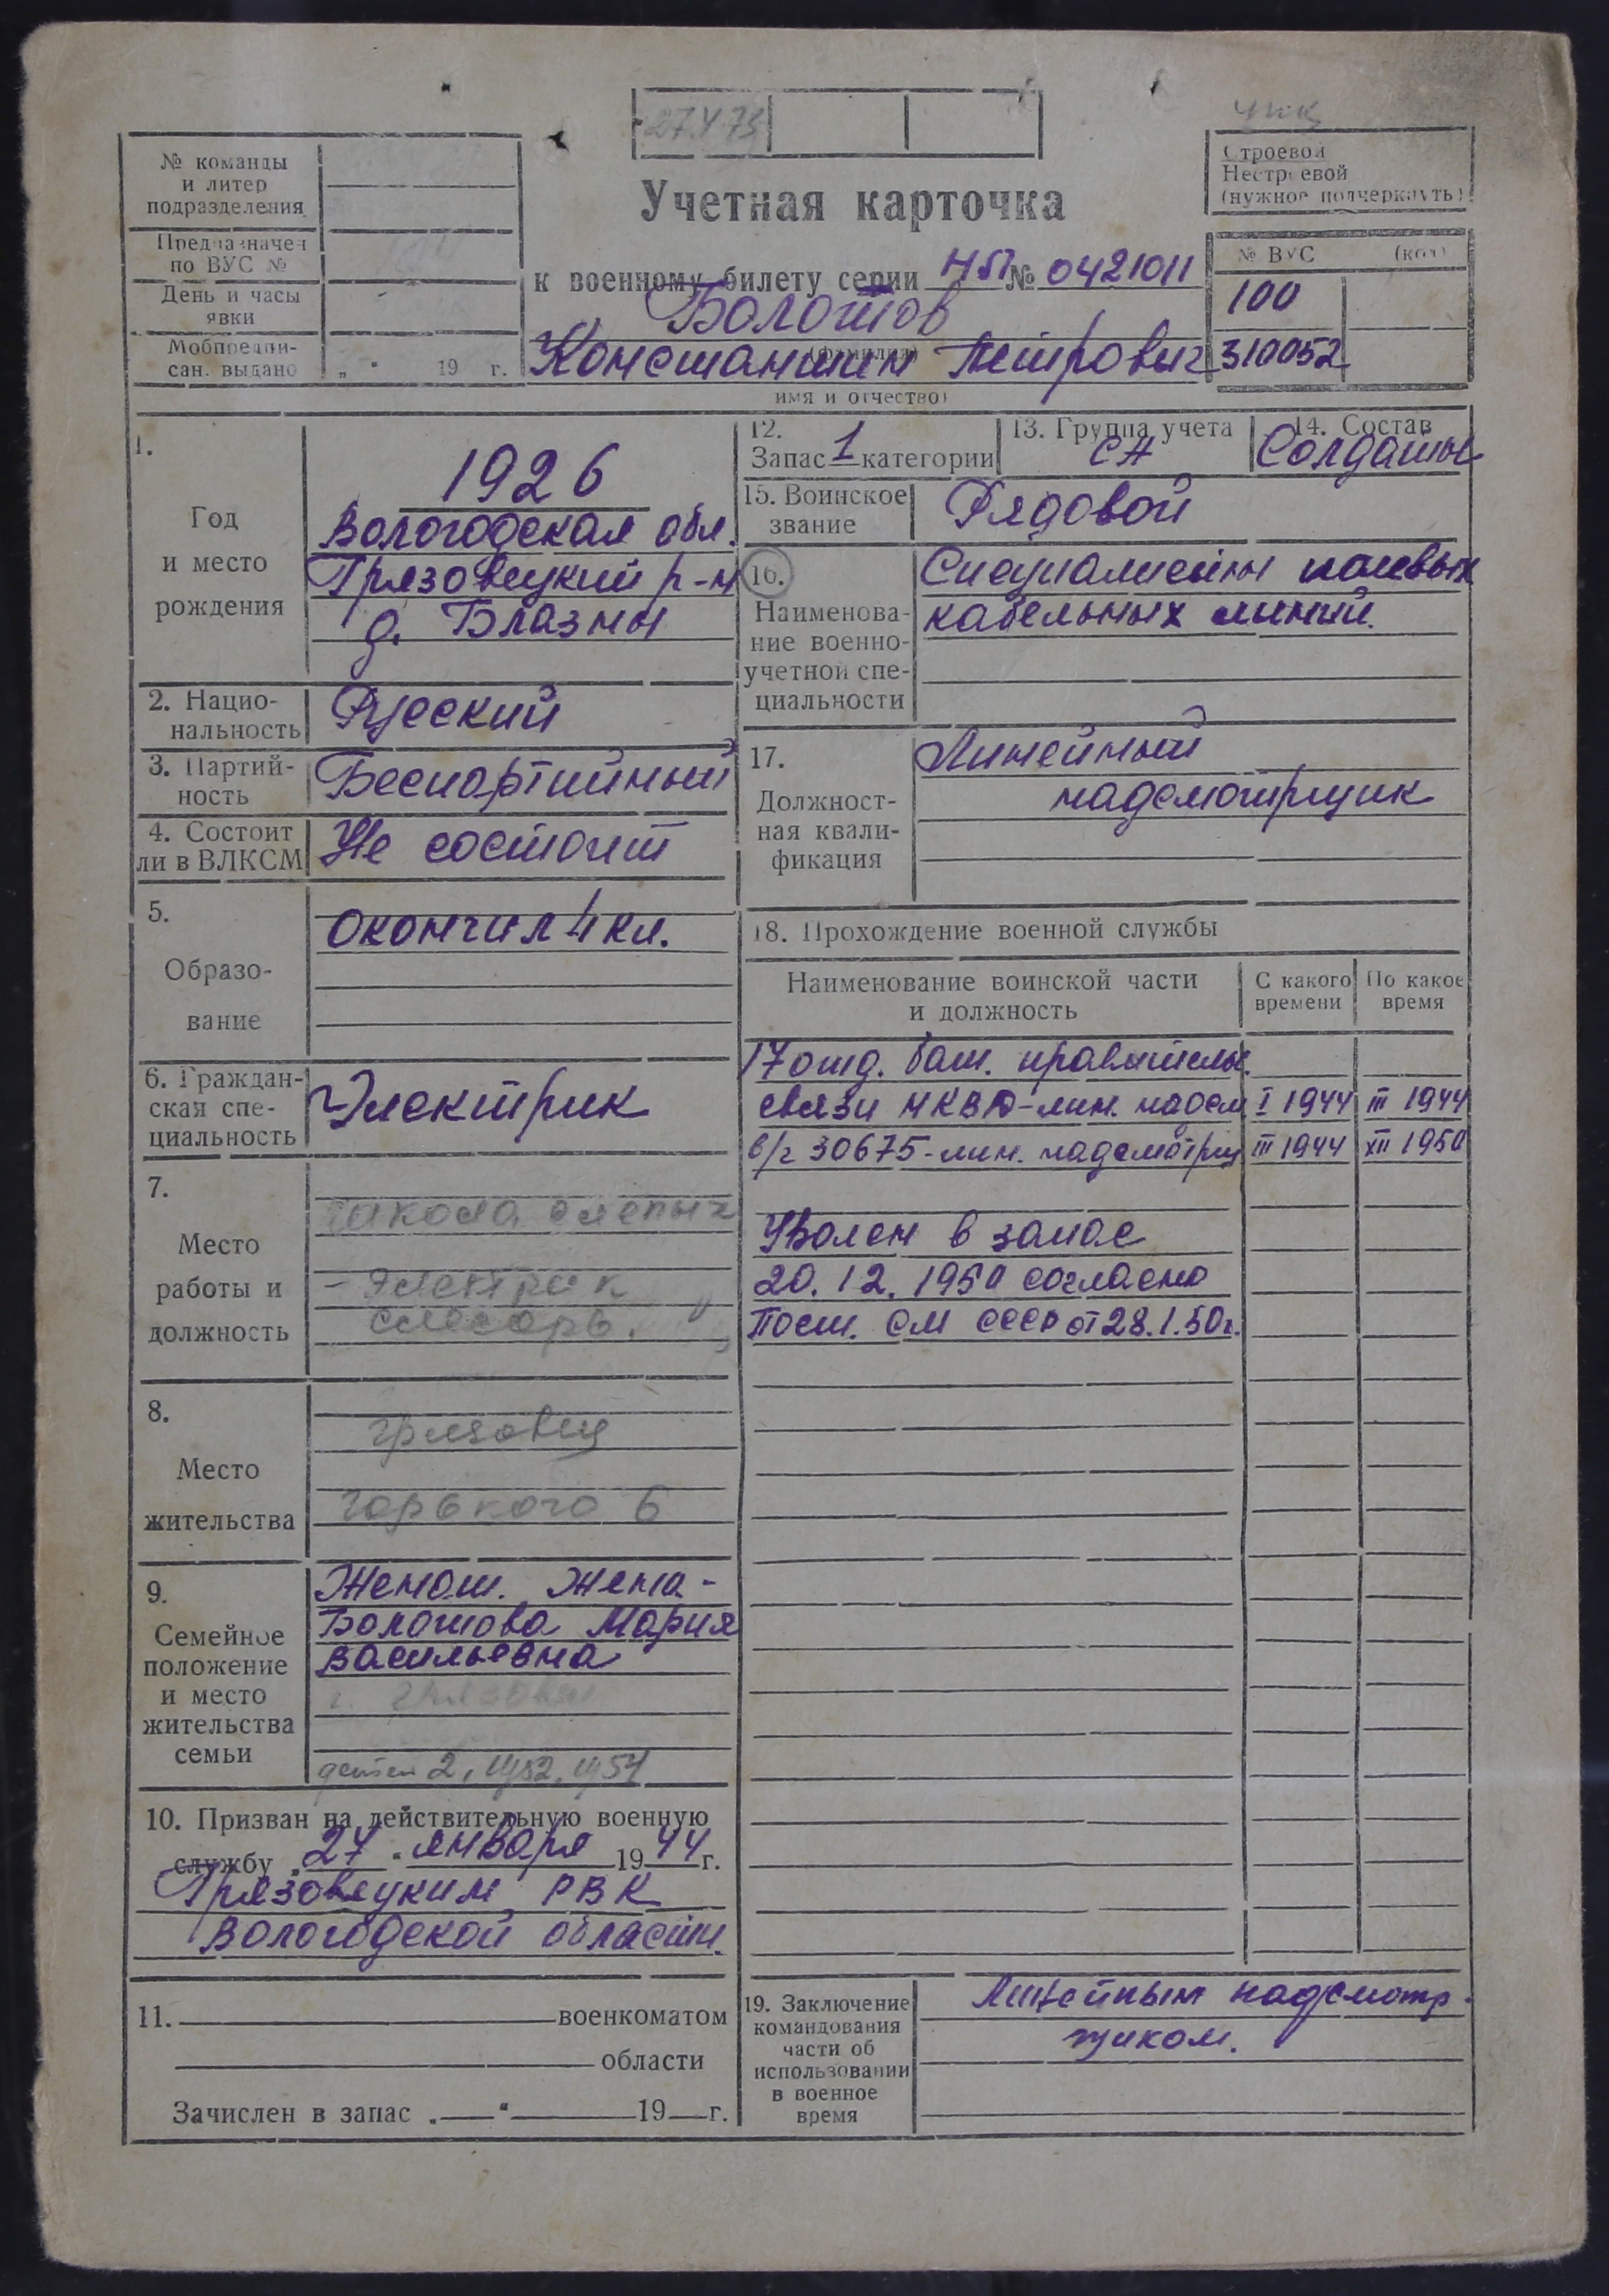 27.V.75
№ команды
и литер
подразделения
Предназначен
по ВУС №
День и часы
явки
Мобпредпи-
сан. выдано „ “ 19 г.
Учетная карточка
к военному билету серии НП № 0421011
Болотов
(фамилия)
Константин Петрович
имя и отчество)
Строевой
Нестроевой
(нужное подчеркнуть)
№ ВУС (код)
100
310052
1.
Год
и место
рождения
1926
Вологодская обл.
Грязовецкий р-н
д. Блазны
2. Нацио-
нальность
Русский
3. Партий-
ность
Беспартийный
4. Состоит
ли в ВЛКСМ
Не состоит
5.
Образо-
вание
Окончил 4 кл.
6. Граждан-
ская спе-
циальность
Электрик
7.
Место
работы и
должность
школа слепых
- электрик
слесарь.
8.
Место
жительства
Грязовец
Горького 6
9.
Семейное
положение
и место
жительства
семьи
Женат. Жена -
Болотова Мария
Васильевна
г. Грязовец
детей 2, 1952, 1957
10. Призван на действительную военную
службу „27“ января 1944 г.
Грязовецким РВК
Вологодской области.
11. военкоматом
области
Зачислен в запас „ “ 19 г.
12.
Запас 1 категории
13. Группа учета
СА
14. Состав
Солдаты
15. Воинское
звание
Рядовой
16.
Наименова-
ние военно-
учетной спе-
циальности
Специалисты полевых
кабельных линий.
17.
Должност-
ная квали-
фикация
Линейный
надсмотрщик
18. Прохождение военной службы
Наименование воинской части
и должность
С какого
времени
По какое
время
17 отд. бат. правительс.
связи НКВД-лин. надсм I 1944 III 1944
в/ч 30675-лин. надсмотрщ III 1944 XII 1950
Уволен в запас
20.12.1950 согласно
Пост. СМ СССР от 28.1.50г.
19. Заключение
командования
части об
использовании
в военное
время
Линейным надсмотр-
щиком.